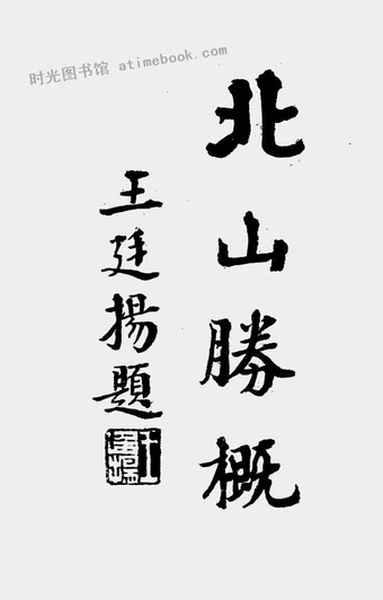 时光图书馆 atimebook.com
北山勝概
王廷揚題